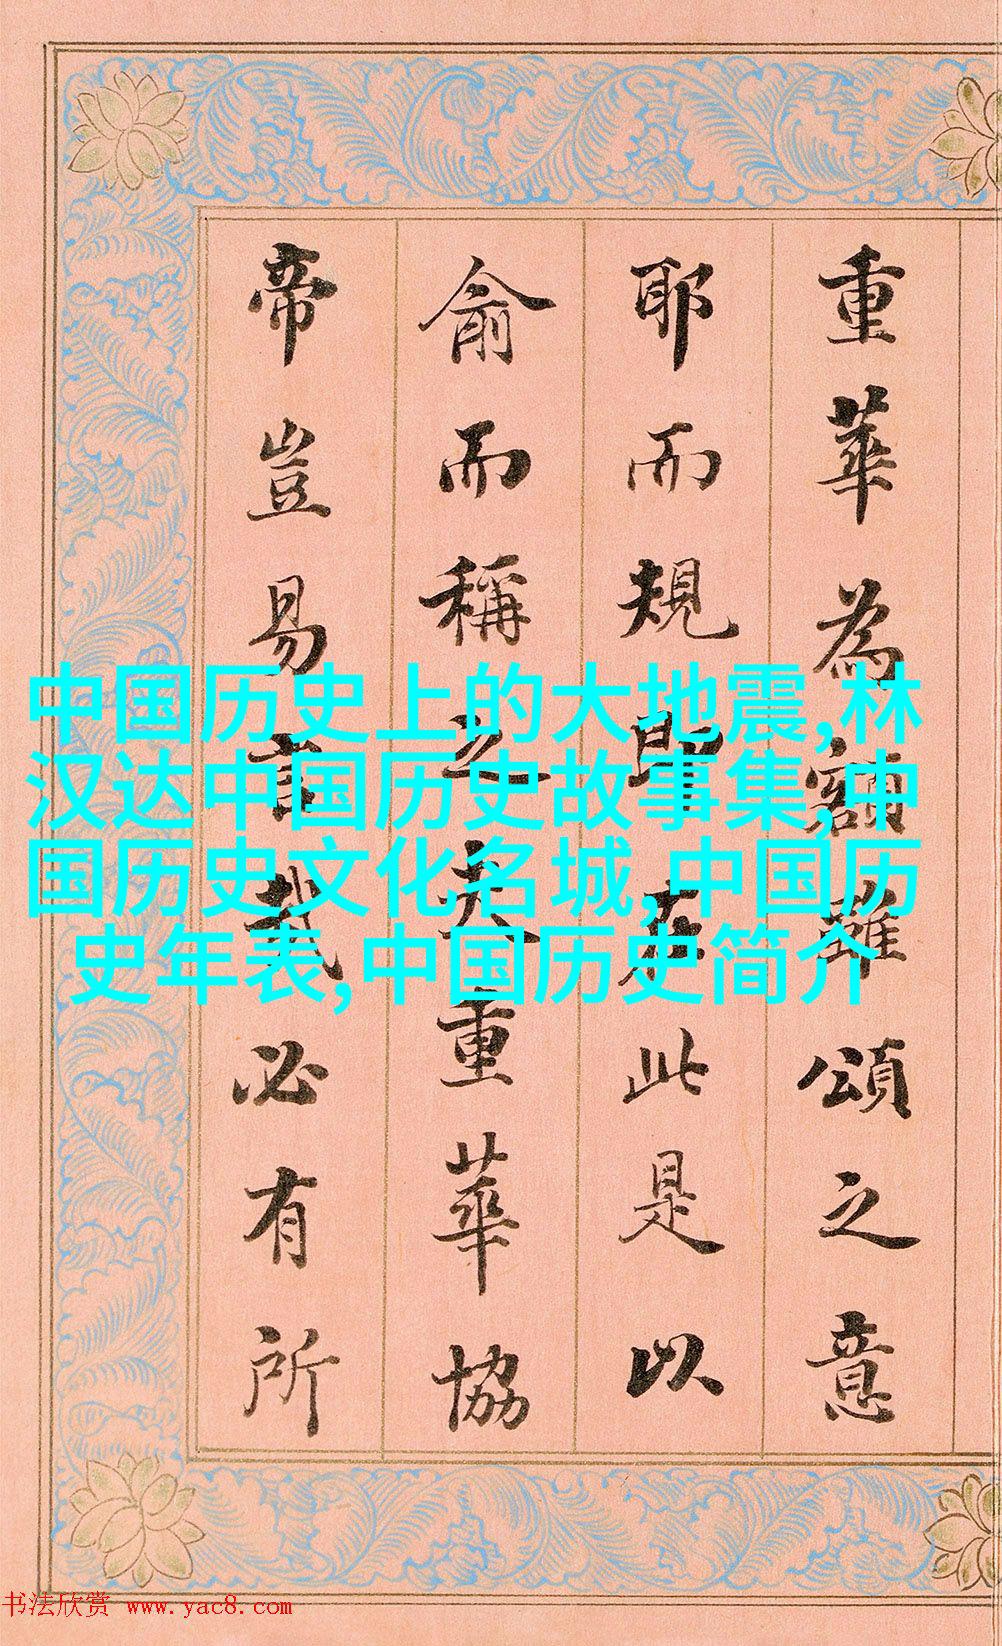 重華為額雖頌之意
耶而規即在此是以
俞而稱之夫重華協
帝豈易言哉必有所
中国历史上的大地震,林
汉达中国历史故事集,中
国历史文化名城,中国历
史年表,中国历史简介
书法欣赏 www.yac8.com